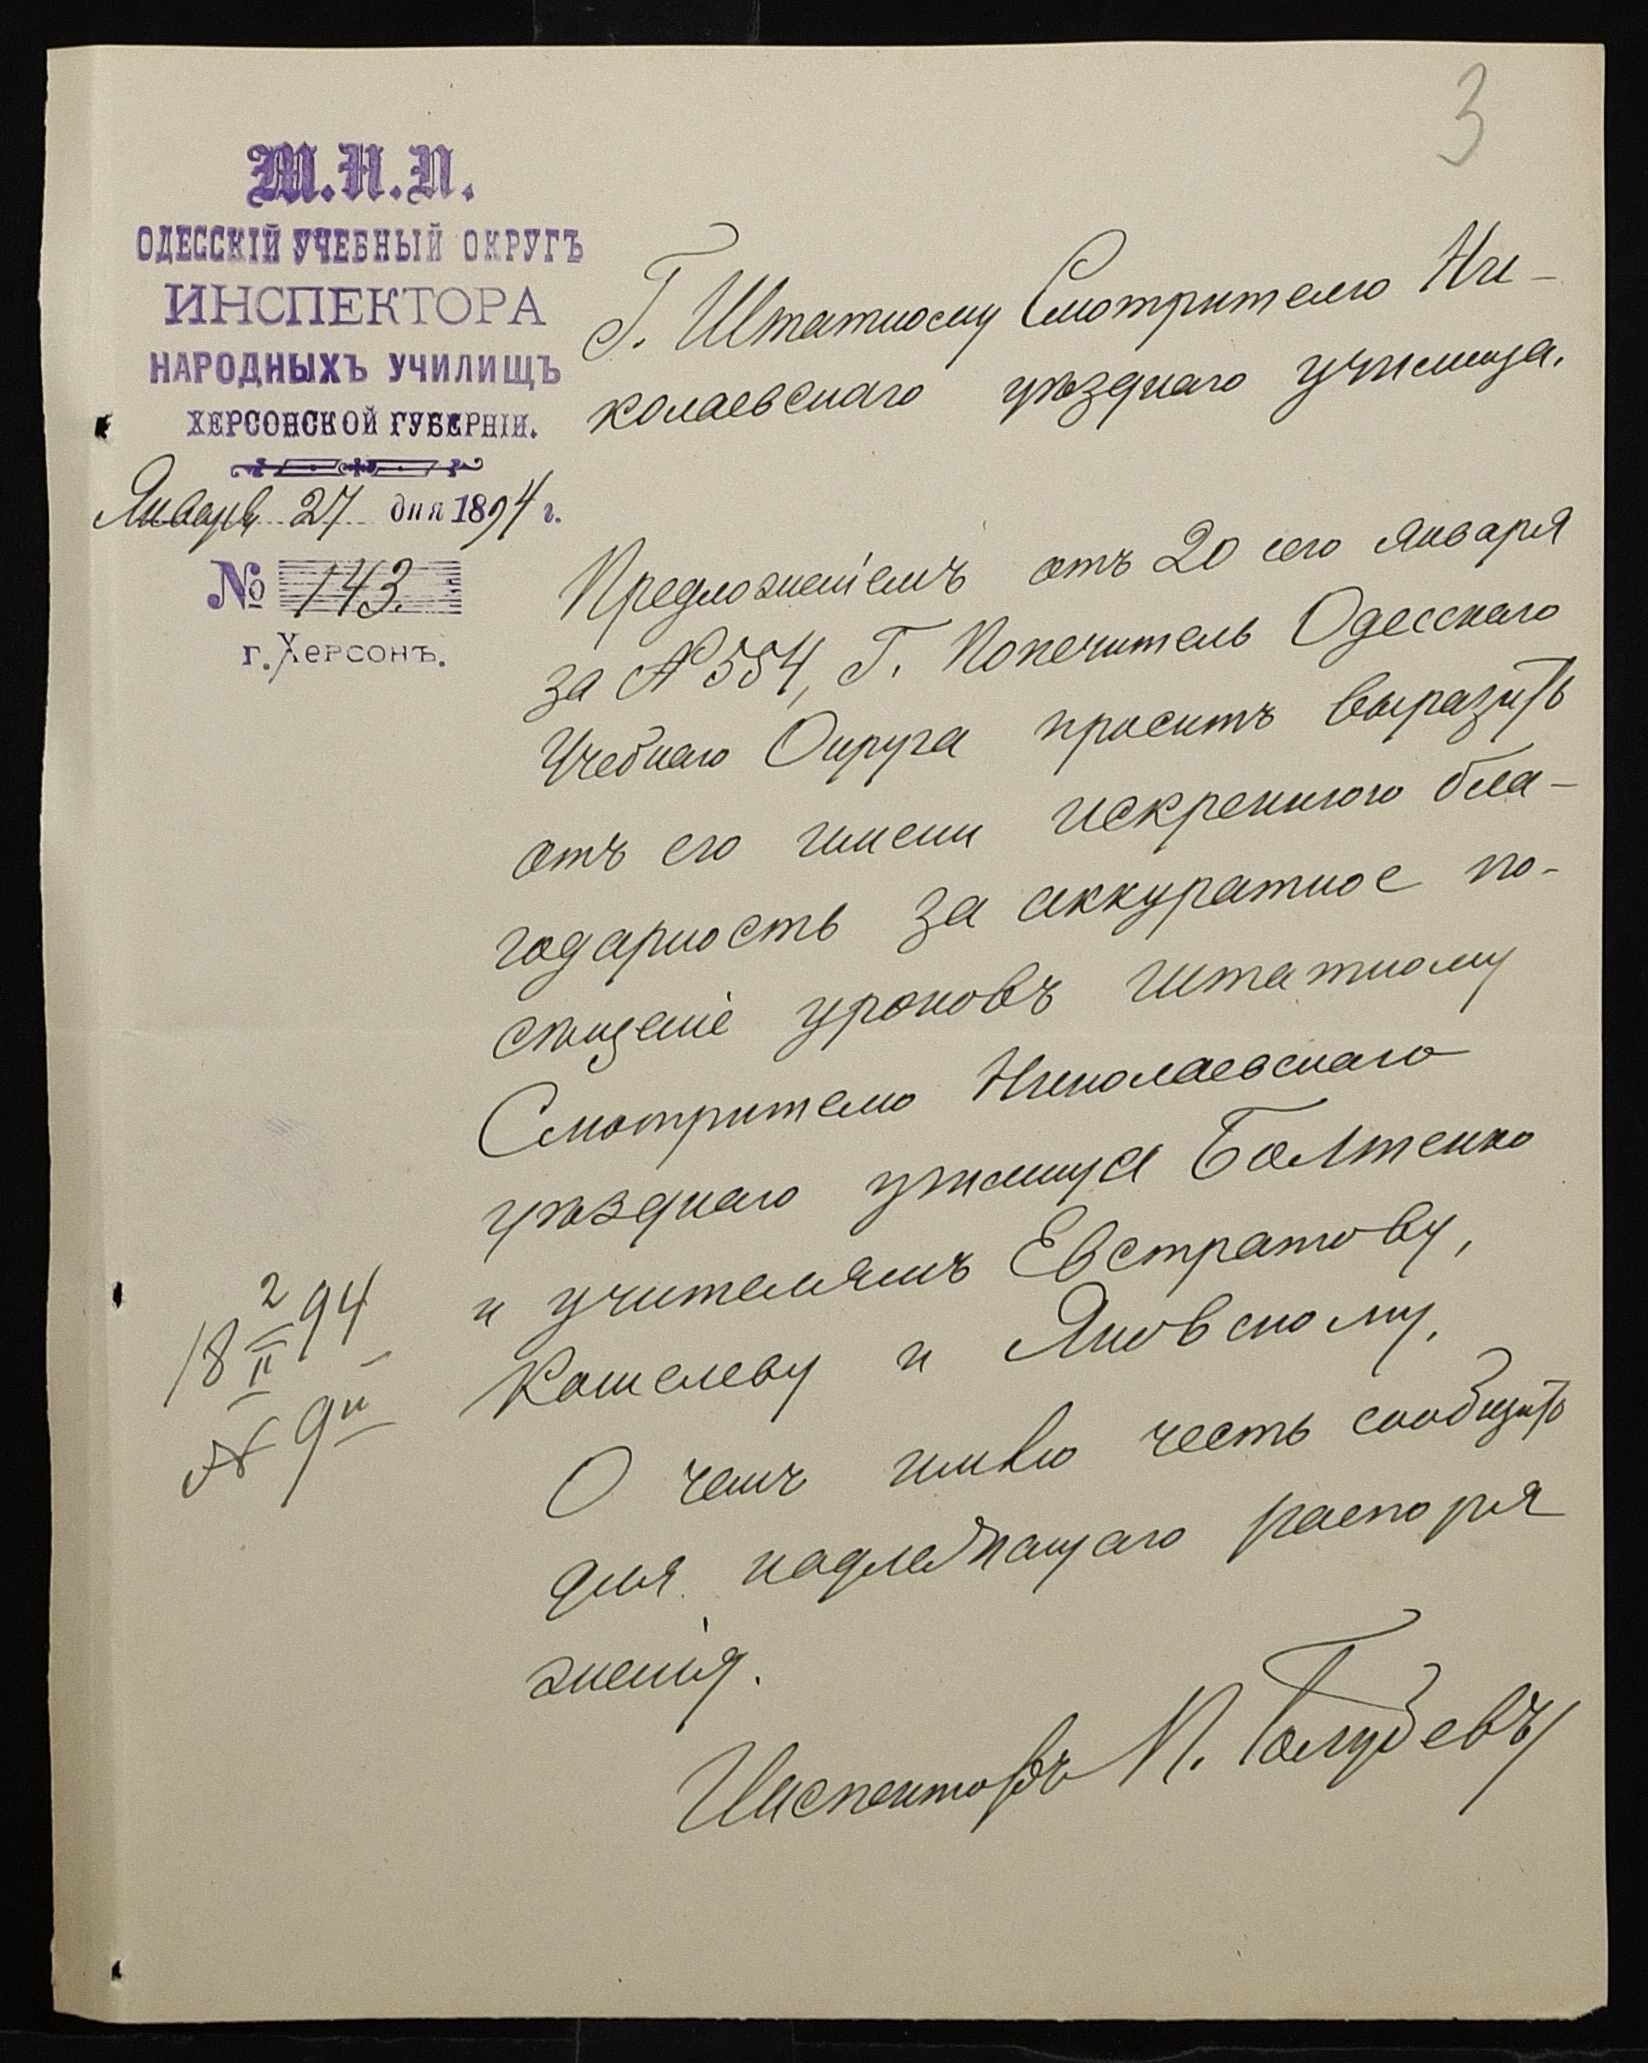 3
М.Н.П.
ОДЕССКІЙ УЧЕБНЫЙ ОКРУГЪ
ИНСПЕКТОРА
НАРОДНЫХЪ УЧИЛИЩЪ
ХЕРСОНСКОЙ ГУБЕРНІИ.
Января 27 дня 1894 г.
№ 143.
г. Херсонъ.
Г. Штатному Смотрителю Ни-
колаевскаго уѣзднаго училища.
Предложеніемъ отъ 20 сего января
за № 554, Г. Попечитель Одесскаго
Учебнаго Округа проситъ выразить
отъ его имени искреннюю бла-
годарность за аккуратное по-
сѣщеніе уроковъ штатному
Смотрителю Николаевскаго
уѣзднаго училища Балтенко
и учителямъ Евстратову,
Кошелеву и Яновскому.
О чемъ имѣю честь сообщить
для надлежащаго распоря
женія.
Инспекторъ П. Голубевъ
18 2/II 94
№ 9